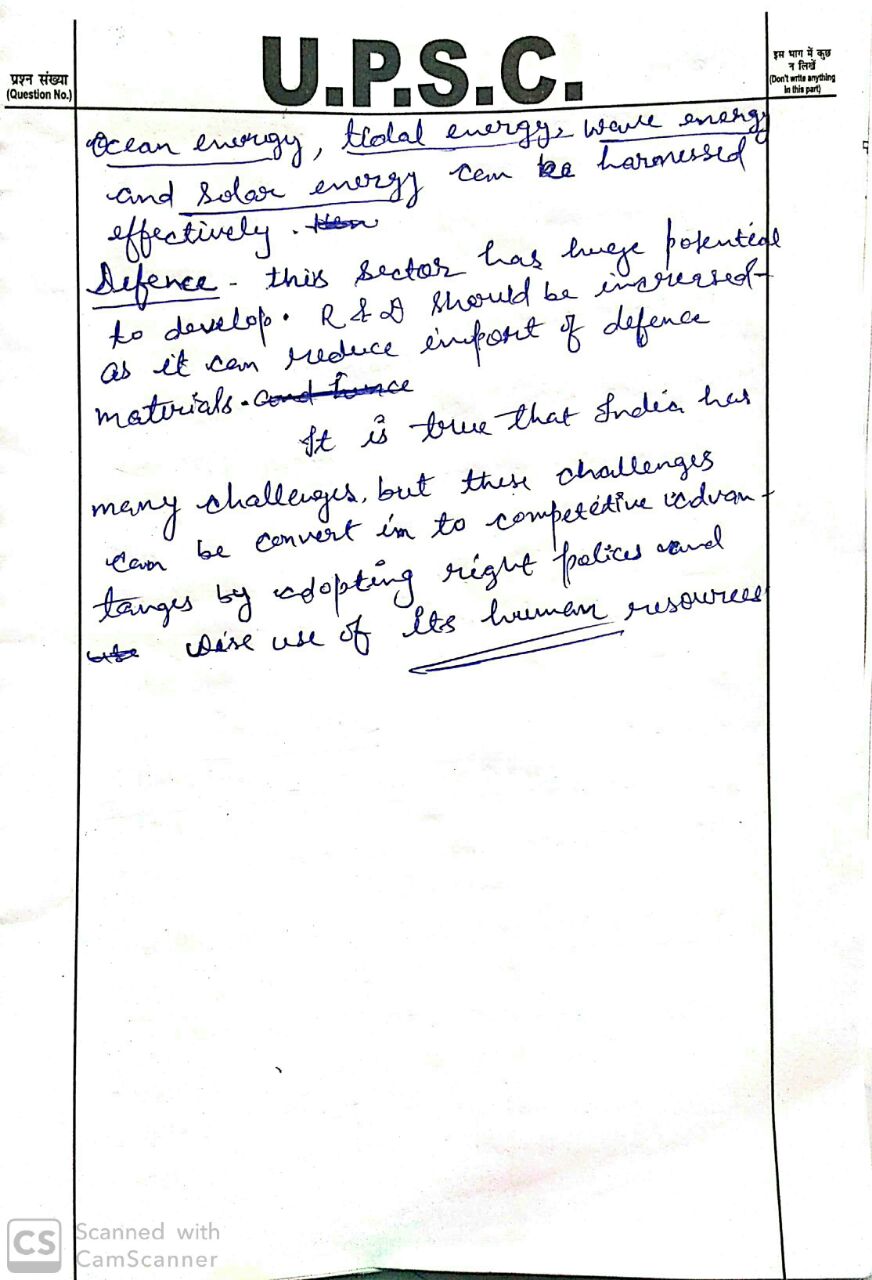 U.P.S.C.
प्रश्न संख्या
(Question No.)
इस भाग में कुछ
न लिखें
(Don't write anything
in this part)
Ocean energy, tidal energy, wave energy
and solar energy can be harnessed
effectively.
Defence - this sector has huge potential
to develop. R & D should be increased
as it can reduce import of defence
materials. and hence
It is true that India has
many challenges, but these challenges
can be convert in to competetive advan-
tanges by adopting right polices and
wise use of its human resources
CS Scanned with
CamScanner